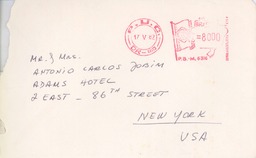 17 V 82
=8000
P.B.M. 
MR. & MRS.
ANTONIO CARLOS JOBIM
ADAMS HOTEL
2 EAST - 86TH STREET
NEW YORK
USA